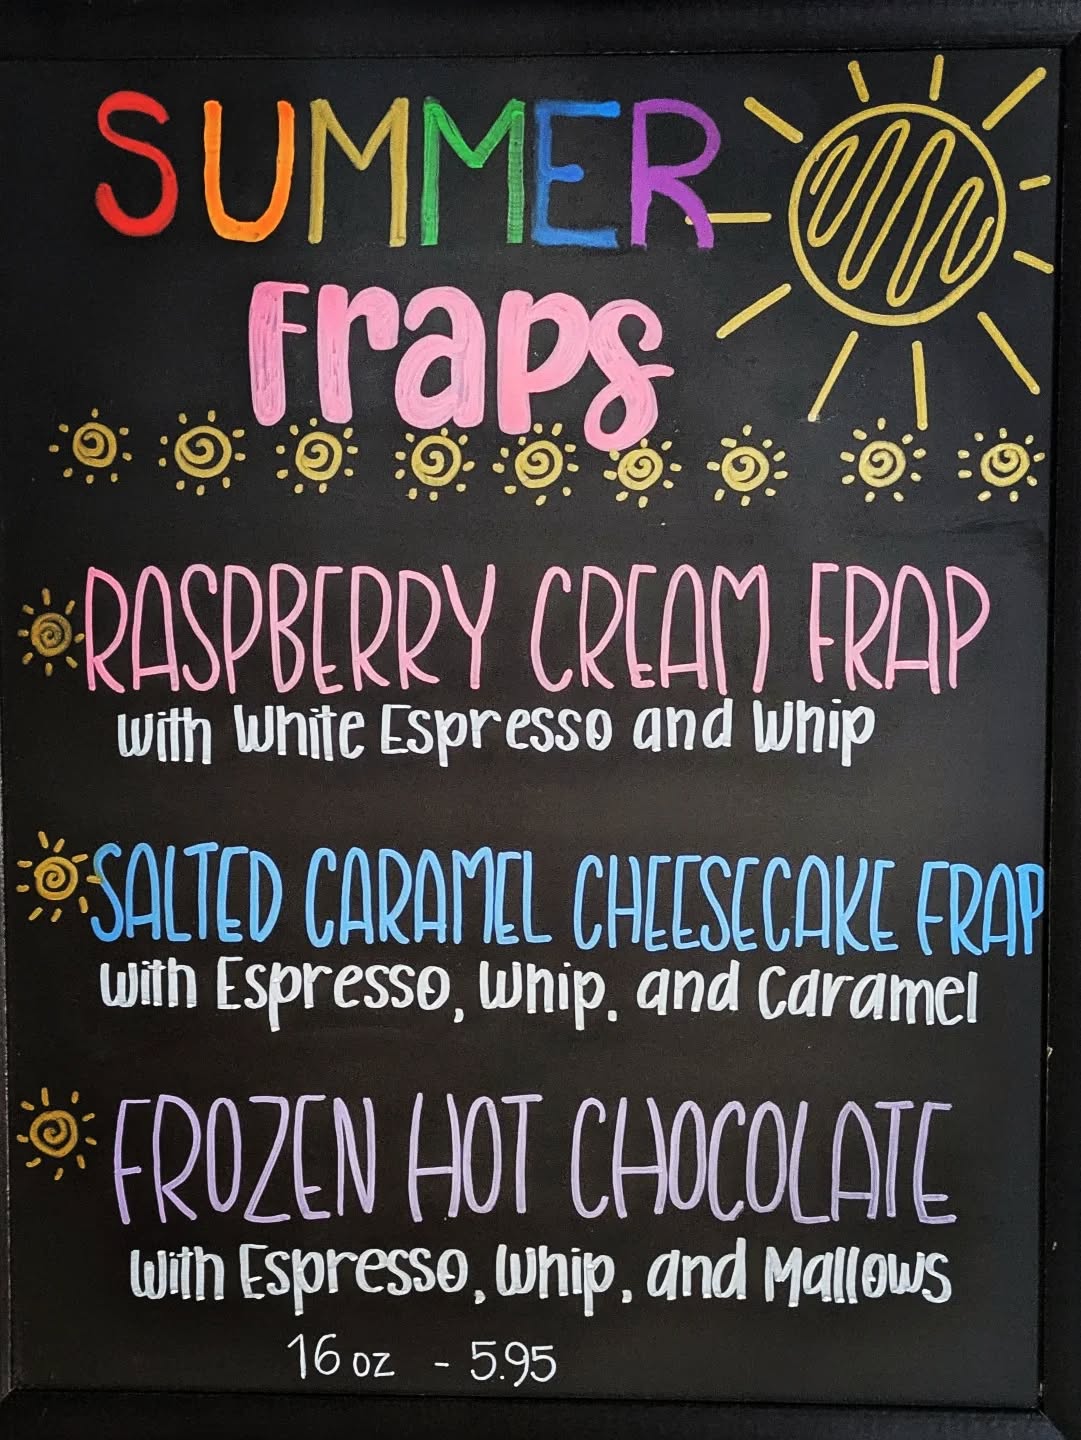 SUMMER
Fraps
RASPBERRY CREAM FRAP
with White Espresso and Whip
SALTED CARAMEL CHEESECAKE FRAP
with Espresso, Whip, and Caramel
FROZEN HOT CHOCOLATE
with Espresso, Whip, and Mallows
16 oz - 5.95